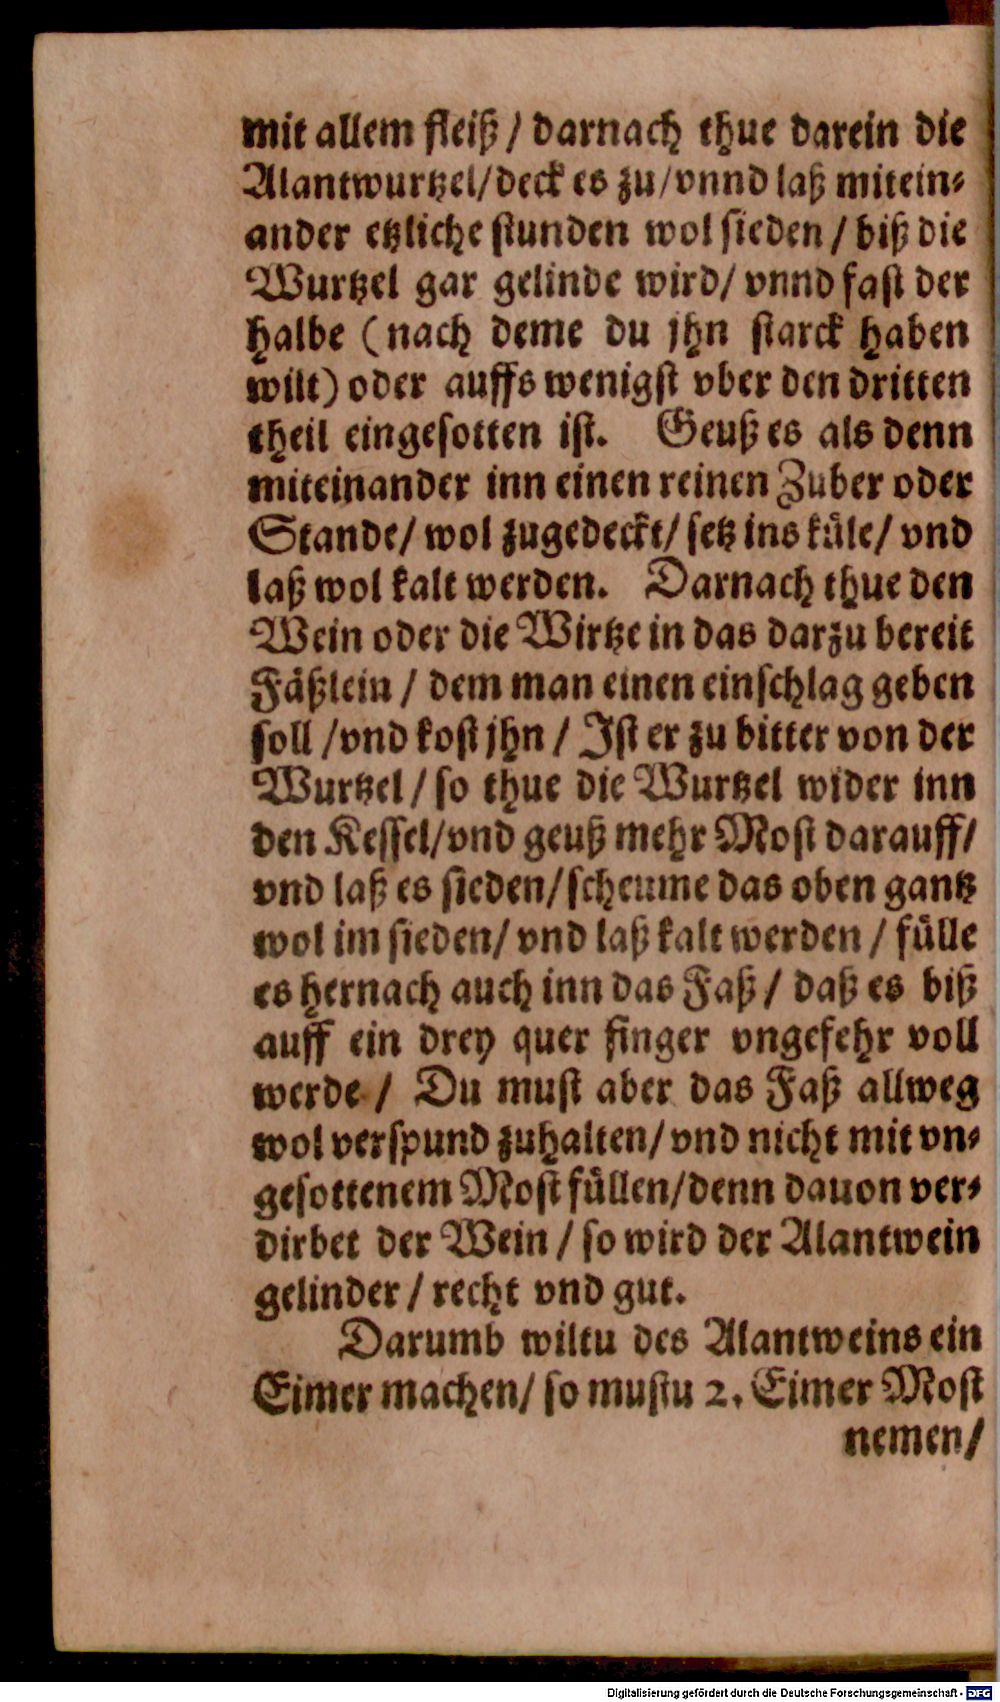 mit allem fleiß / darnach thue darein die
Alantwurtzel/deck es zu/vnnd laß mitein⸗
ander etzliche stunden wol sieden / biß die
Wurtzel gar gelinde wird/ vnnd fast der
halbe (nach deme du jhn starck haben
wilt) oder auffs wenigst vber den dritten
theil eingesotten ist. Geuß es als denn
miteinander inn einen reinen Zuber oder
Stande/ wol zugedeckt/ setz ins küle/ vnd
laß wol kalt werden. Darnach thue den
Wein oder die Wirtze in das darzu bereit
Fäßlein / dem man einen einschlag geben
soll /vnd kost jhn / Ist er zu bitter von der
Wurtzel / so thue die Wurtzel wider inn
den Kessel/vnd geuß mehr Most darauff/
vnd laß es sieden/scheume das oben gantz
wol im sieden/ vnd laß kalt werden / fülle
es hernach auch inn das Faß / daß es biß
auff ein drey quer finger vngefehr voll
werde / Du must aber das Faß allweg
wol verspund zuhalten/ vnd nicht mit vn⸗
gesottenem Most füllen/denn dauon ver⸗
dirbet der Wein / so wird der Alantwein
gelinder / recht vnd gut.
Darumb wiltu des Alantweins ein
Eimer machen/ so mustu 2. Eimer Most
nemen/
Digitalisierung gefördert durch die Deutsche Forschungsgemeinschaft - DFG